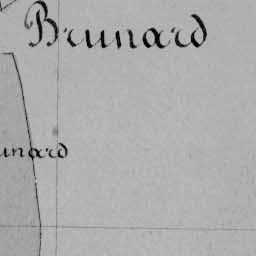 Brunard
unard